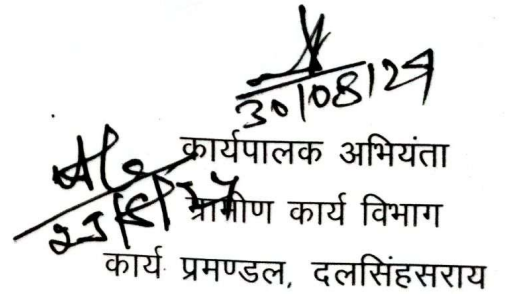 30/08/24
कार्यपालक अभियंता
ग्रामीण कार्य विभाग
कार्य प्रमण्डल, दलसिंहसराय